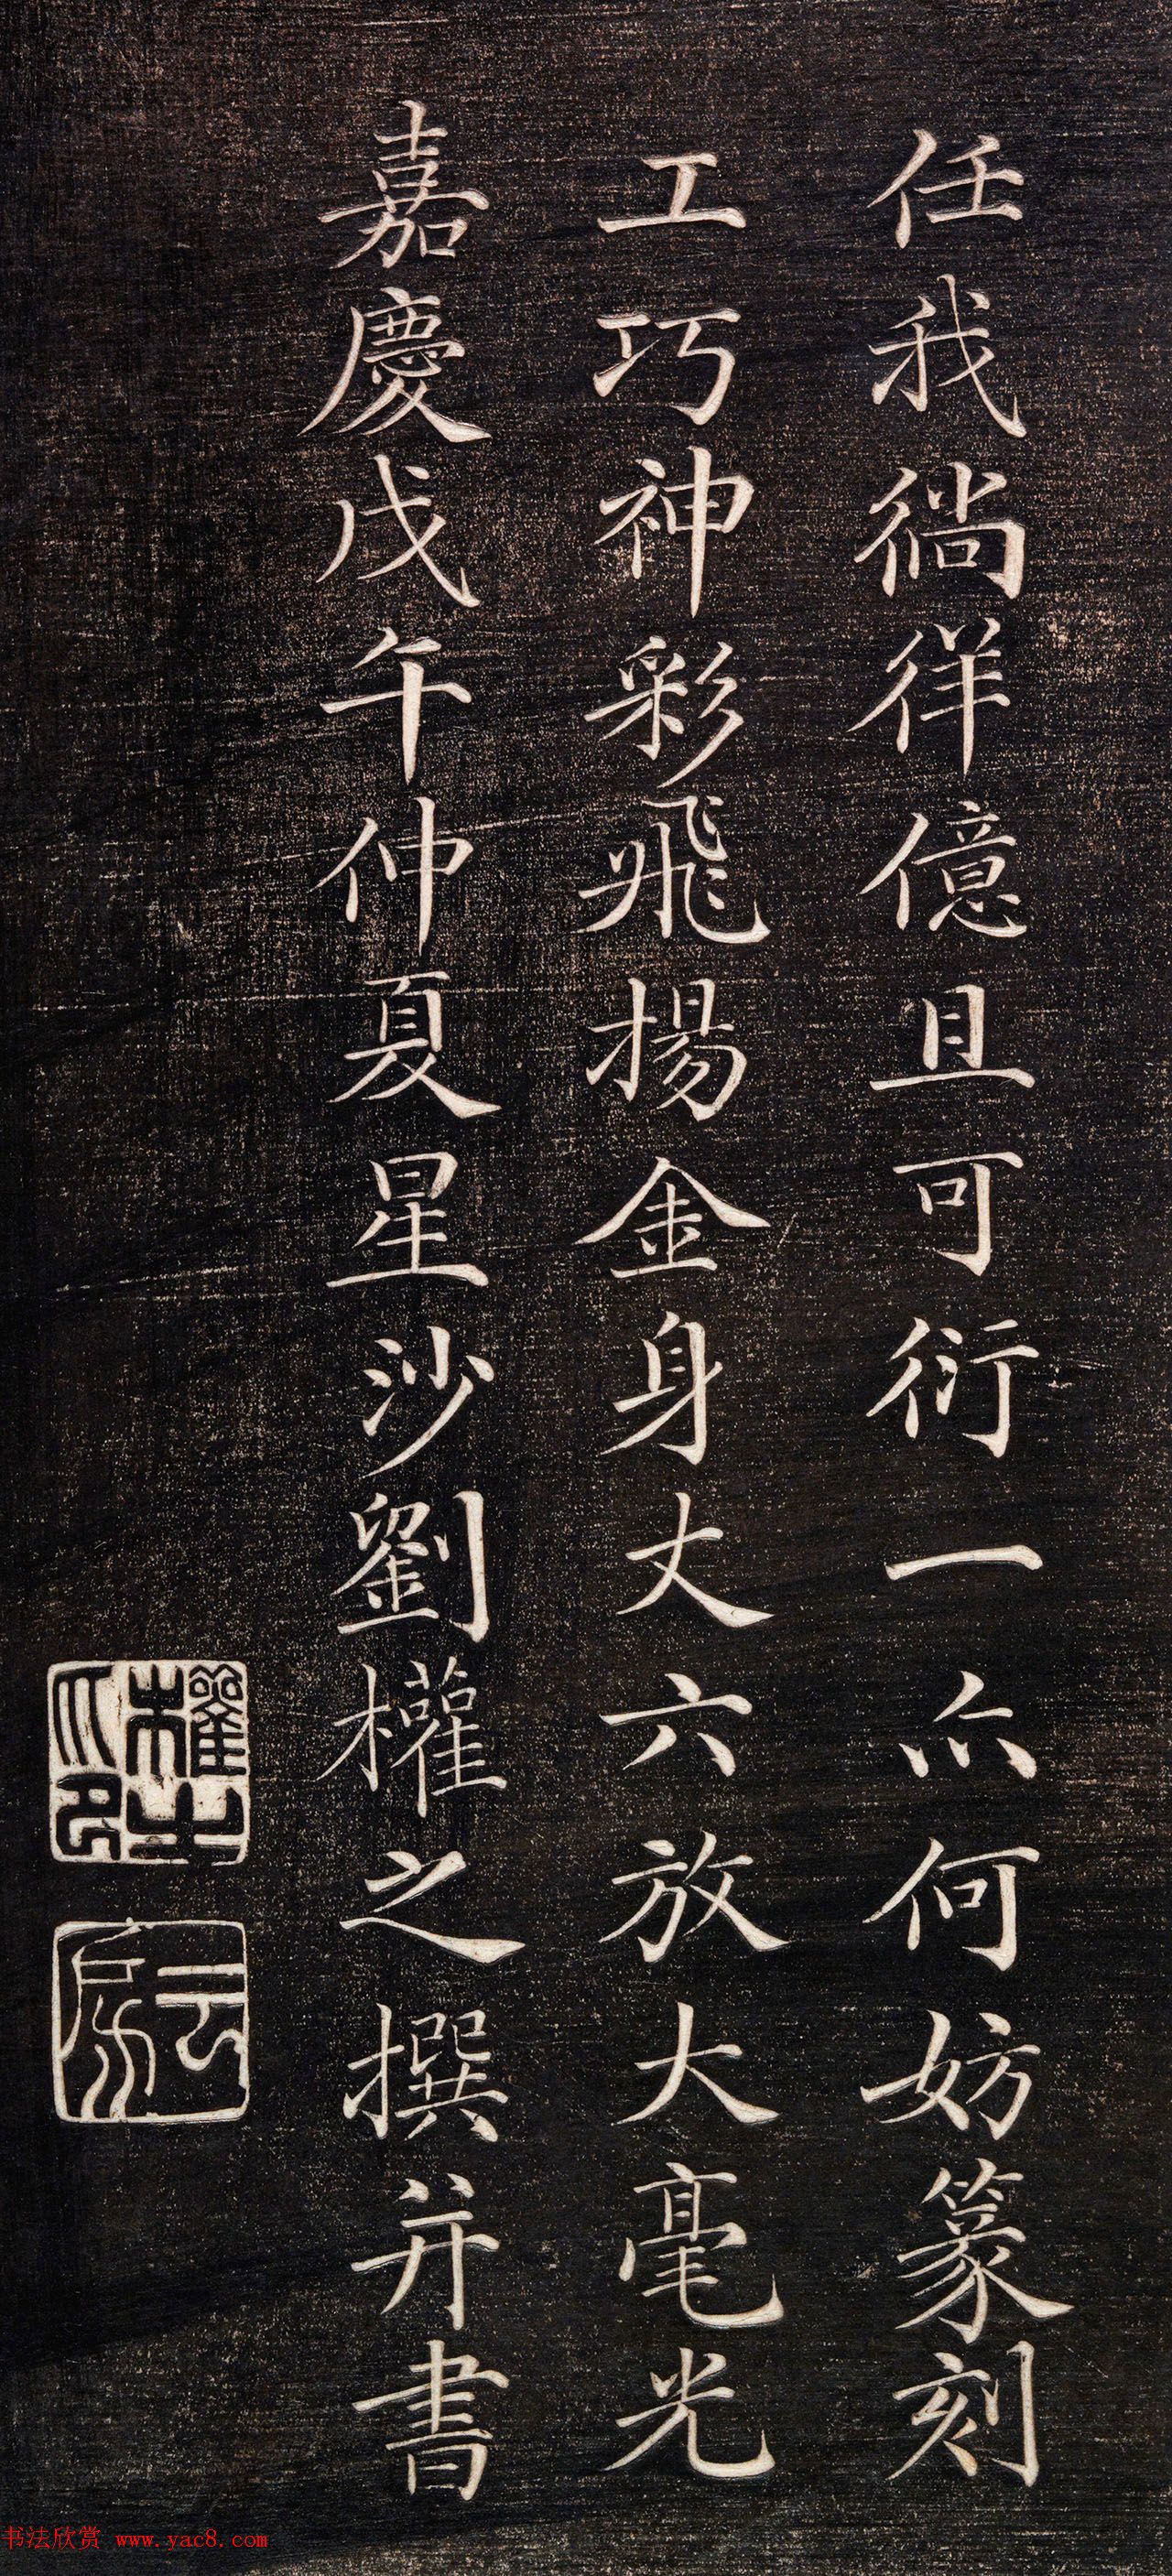 任我徜徉億且可衍一亦何妨篆刻
工巧神彩飛揚金身丈六放大毫光
嘉慶戊午仲夏星沙劉權之撰并書
權之
雲房
书法欣赏 www.yac8.com